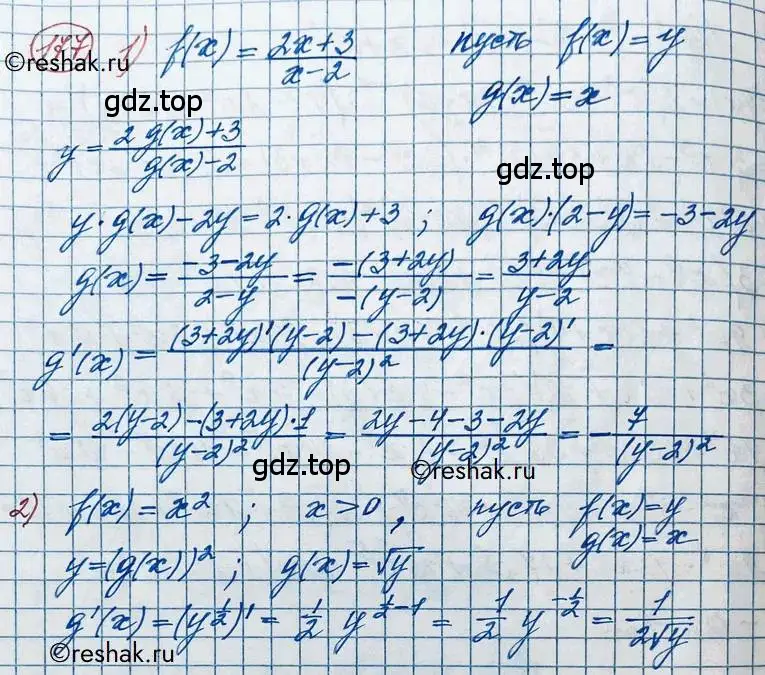 177 1) f(x) = (2x+3)/(x-2) пусть f(x) = y
©reshak.ru
g(x) = x
gdz.top
y = (2 g(x)+3)/(g(x)-2)
gdz.top
y·g(x)-2y=2·g(x)+3 ; g(x)·(2-y)=-3-2y
g(x) = (-3-2y)/(2-y) = (-(3+2y))/(-(y-2)) = (3+2y)/(y-2)
g'(x) = ((3+2y)'(y-2)-(3+2y)·(y-2)')/(y-2)² =
= (2(y-2)-(3+2y)·1)/(y-2)² = (2y-4-3-2y)/(y-2)² = - 7/(y-2)²
gdz.top ©reshak.ru
2) f(x) = x² ; x>0 , пусть f(x)=y
g(x)=x
y=(g(x))² ; g(x)=√y
g'(x) = (y^(1/2))' = 1/2 y^(1/2-1) = 1/2 y^(-1/2) = 1/(2√y)
©reshak.ru
reshak.ru